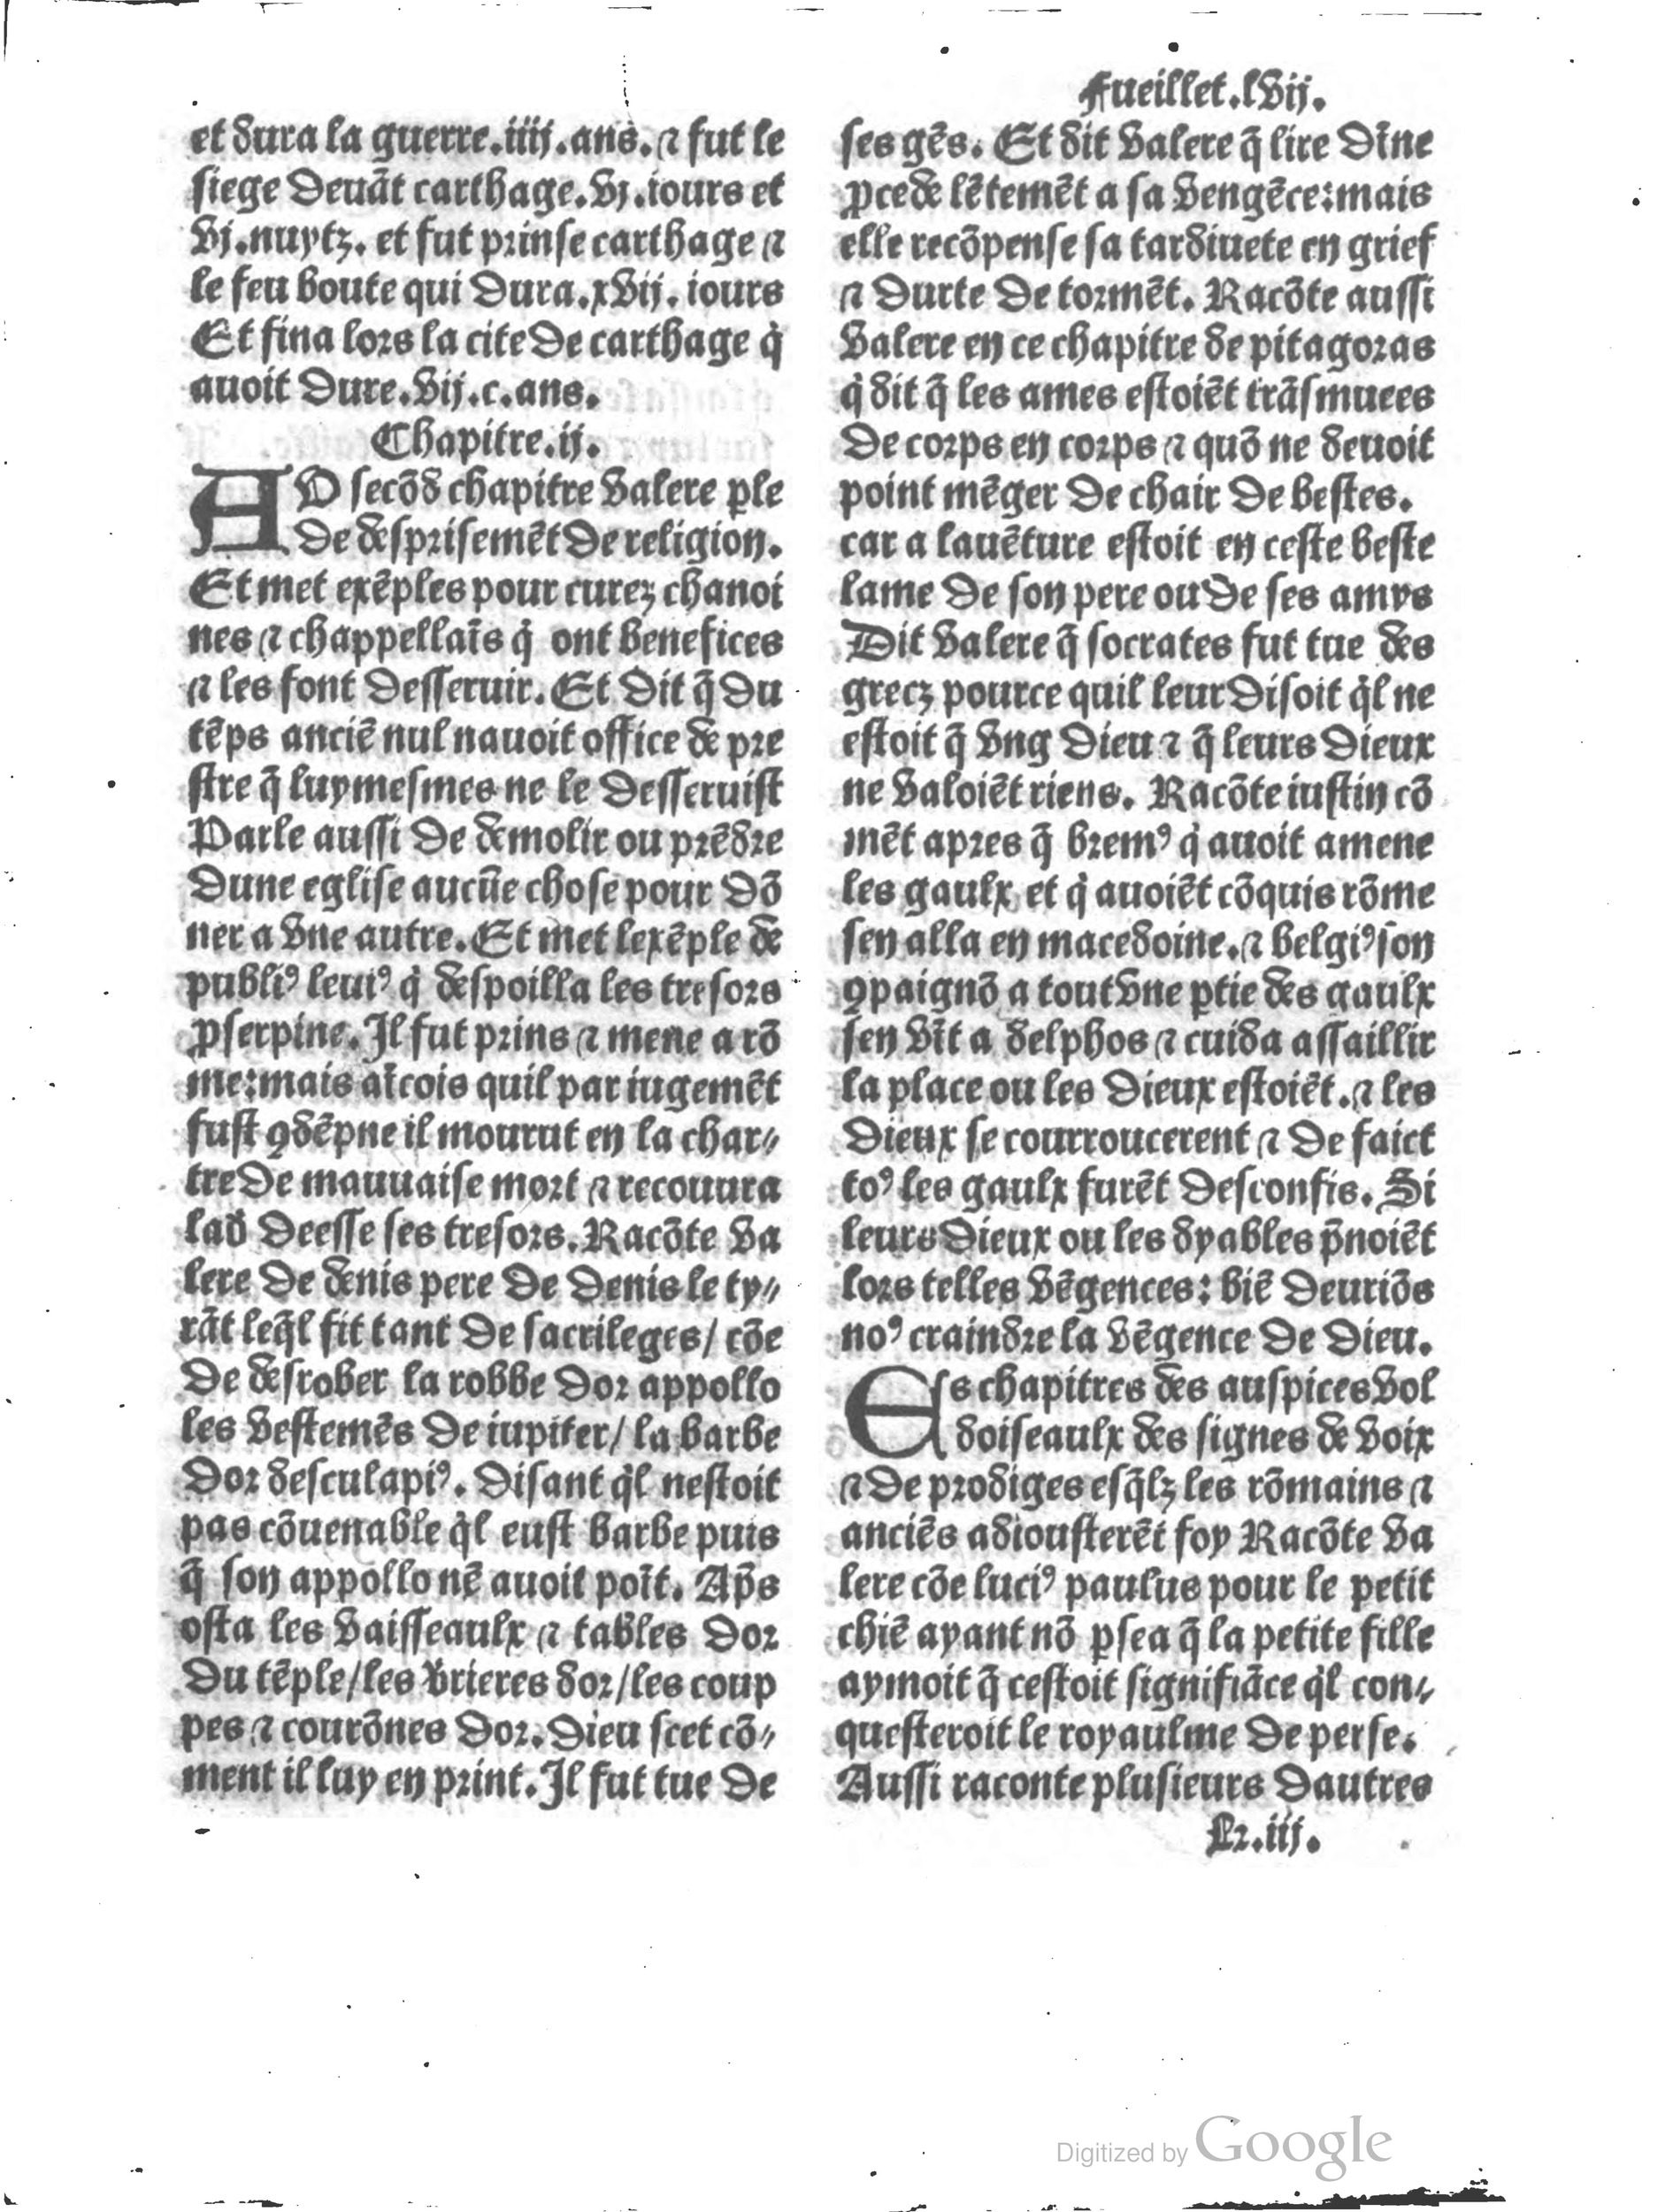 Fueillet.lvij.
et dura la guerre.iiij.ans. ⁊ fut le
siege deuāt carthage.vj.iours et
vj.nuytz. et fut prinse carthage ⁊
le feu boute qui dura.xvij. iours
Et fina lors la cite de carthage q̇
auoit dure.vij.c.ans.
Chapitre.ij.
AV secōd chapitre valere ꝑle
de desprisemēt de religion.
Et met exēples pour curez chanoi
nes ⁊ chappellaīs q̇ ont benefices
⁊ les font desseruir. Et dit q̄ du
tēps anciē nul nauoit office de pre
stre q̄ luymesmes ne le desseruist
Parle aussi de demolir ou prēdre
dune eglise aucūe chose pour dō
ner a vne autre. Et met lexēple de
publiꝰ leuiꝰ q̇ despoilla les tresors
ꝓserpine. Il fut prins ⁊ mene a rō
me:mais aīcois quil par iugemēt
fust ꝯdēpne il mourut en la char⸗
tre de mauuaise mort ⁊ recouura
lad̄ deesse ses tresors. Racōte va
lere de denis pere de denis le ty⸗
rāt leq̄l fit tant de sacrileges/ cōe
de desrober la robbe dor appollo
les vestemēs de iupiter/ la barbe
dor desculapiꝰ. disant q̇l nestoit
pas cōuenable q̇l eust barbe puis
q̄ son appollo nē auoit poīt. Ap̄s
osta les vaisseaulx ⁊ tables dor
du tēple/les vrieres dor/les coup
pes ⁊ courōnes dor. dieu scet cō⸗
ment il luy en print. Il fut tue de
ses gēs. Et dit valere q̄ lire dīne
ꝓcede lētemēt a sa vengēce:mais
elle recōpense sa tardiuete en grief
⁊ durte de tormēt. Racōte aussi
valere en ce chapitre de pitagoras
q̇ dit q̄ les ames estoiēt trāsmuees
de corps en corps ⁊ quō ne deuoit
point mēger de chair de bestes.
car a lauēture estoit en ceste beste
lame de son pere ou de ses amys
Dit valere q̄ socrates fut tue des
grecz pource quil leur disoit q̇l ne
estoit q̄ vng dieu ⁊ q̄ leurs dieux
ne valoiēt riens. Racōte iustin cō
mēt apres q̄ bremꝰ q̇ auoit amene
les gaulx et q̇ auoiēt cōquis rōme
sen alla en macedoine. ⁊ belgiꝰ son
ꝯpaignō a tout vne ꝑtie des gaulx
sen vīt a delphos ⁊ cuida assaillir
la place ou les dieux estoiēt. ⁊ les
dieux se courroucerent ⁊ de faict
toꝰ les gaulx furēt desconfis. Si
leurs dieux ou les dyables p̄noiēt
lors telles vēgences: biē deuriōs
noꝰ craindre la vēgence de dieu.
Es chapitres des auspices vol
doiseaulx des signes de voix
⁊ de prodiges esq̄lz les rōmains ⁊
anciēs adiousterēt foy Racōte va
lere cōe luciꝰ paulus pour le petit
chiē ayant nō ꝑsea q̄ la petite fille
aymoit q̄ cestoit signifiāce q̇l con⸗
questeroit le royaulme de perse.
Aussi raconte plusieurs dautres
Rr.iij.
Digitized by Google